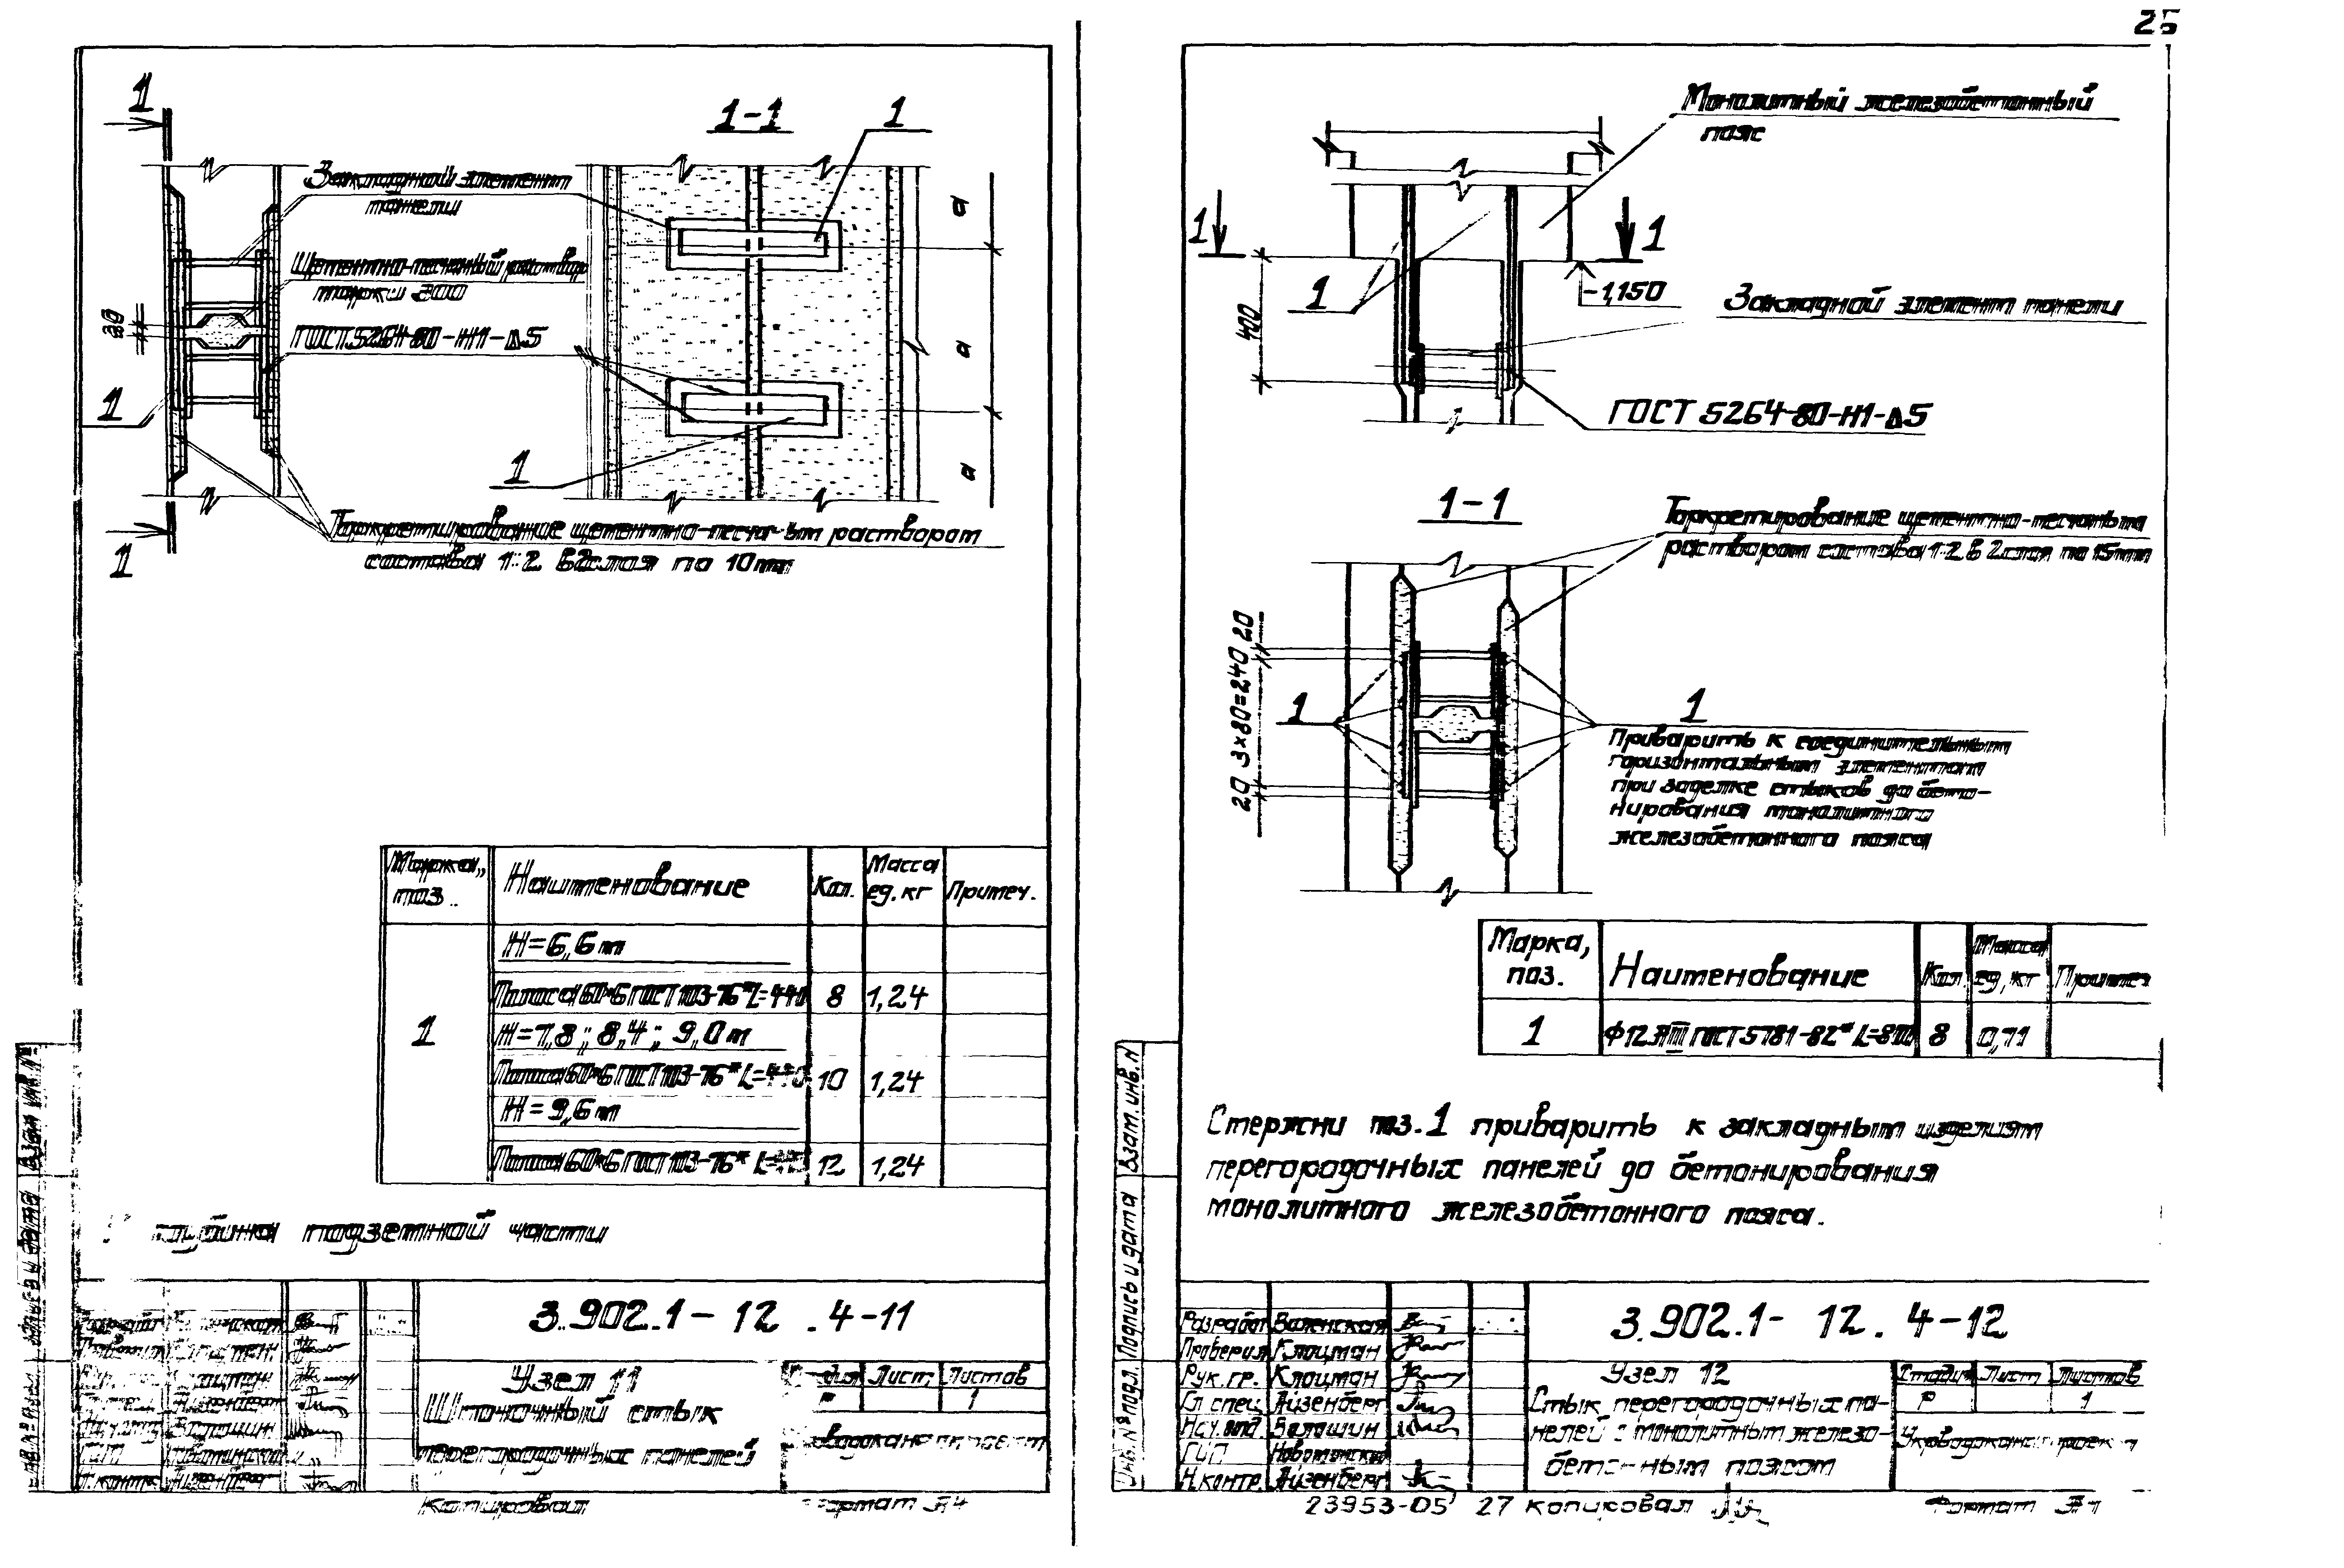 25
1
1-1
1
Закладной элемент
панели
Цементно-песчаный раствор
марки 300
ГОСТ 5264-80-Н1-Δ5
20
1
1
а
а
а
1
Торкретирование цементно-песчаным раствором
состава 1:2 в 2 слоя по 10мм
Марка, поз. Наименование Кол. Масса ед. кг Примеч.
1
H=6,6м
Полоса 60×6 ГОСТ 103-76* L=440 8 1,24
H=7,8; 8,4; 9,0м
Полоса 60×6 ГОСТ 103-76* L=440 10 1,24
H=9,6м
Полоса 60×6 ГОСТ 103-76* 12 1,24
подземной части
3.902.1-12.4-11
Узел 11
Шпоночный стык
перегородочных панелей
Лист Листов
Р 1
Копировал
Формат А4
Монолитный железобетонный
пояс
1
1
1
-1,150
400
Закладной элемент панели
ГОСТ 5264-80-Н1-Δ5
1-1
Торкретирование цементно-песчаным
раствором состава 1:2 в 2 слоя по 15мм
20 3×80=240 20
1
1
Приварить к соединительным
горизонтальным элементам
при заделке стыков до бето-
нирования монолитного
железобетонного пояса
Марка, поз. Наименование Кол. Масса ед, кг Примеч
1 Ф12 АIII ГОСТ 5781-82* L=800 8 0,71
Стержни поз.1 приварить к закладным изделиям
перегородочных панелей до бетонирования
монолитного железобетонного пояса.
Взам. инв. N
Подпись и дата
Инв. № подл.
3.902.1-12.4-12
Разработ Валенская
Проверил Клоцман
Рук. гр. Клоцман
Гл спец Айзенберг
Нач. отд Волошин
ГИП
Н. контр. Айзенберг
Узел 12
Стык перегородочных па-
нелей с монолитным железо-
бетонным поясом
Стадия Лист Листов
Р 1
Укрводоканалпроект
23953-05 27 копировал
Формат А4